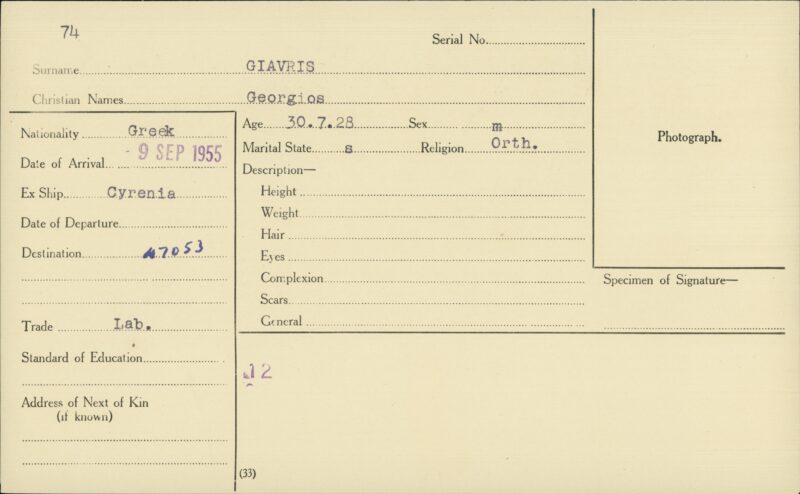 74
Serial No.
Surname GIAVRIS
Christian Names Georgios
Nationality Greek
Date of Arrival - 9 SEP 1955
Ex Ship Cyrenia
Date of Departure
Destination 47053
Trade Lab.
Standard of Education
Address of Next of Kin
(if known)
Age 30.7.28 Sex m
Marital State s Religion Orth.
Description—
Height
Weight
Hair
Eyes
Complexion
Scars
General
12
(33)
Photograph.
Specimen of Signature—